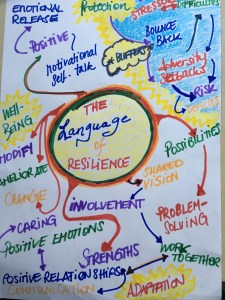 EMOTIONAL
RELEASE
Protection
STRESSORS
DIFFICULTIES
POSITIVE
motivational
self-talk
BOUNCE
BACK
BUFFERS
Adversity
Setbacks
RISK
THE
Language
of
RESILIENCE
WELL-
BEING
MODIFY
AMELIORATE
CHANGE
CARING
POSITIVE EMOTIONS
POSITIVE RELATIONSHIPS
COMMUNICATION
INVOLVEMENT
STRENGTHS
SHARED
VISION
POSSIBILITIES
PROBLEM-
SOLVING
WORK
TOGETHER
ADAPTATION